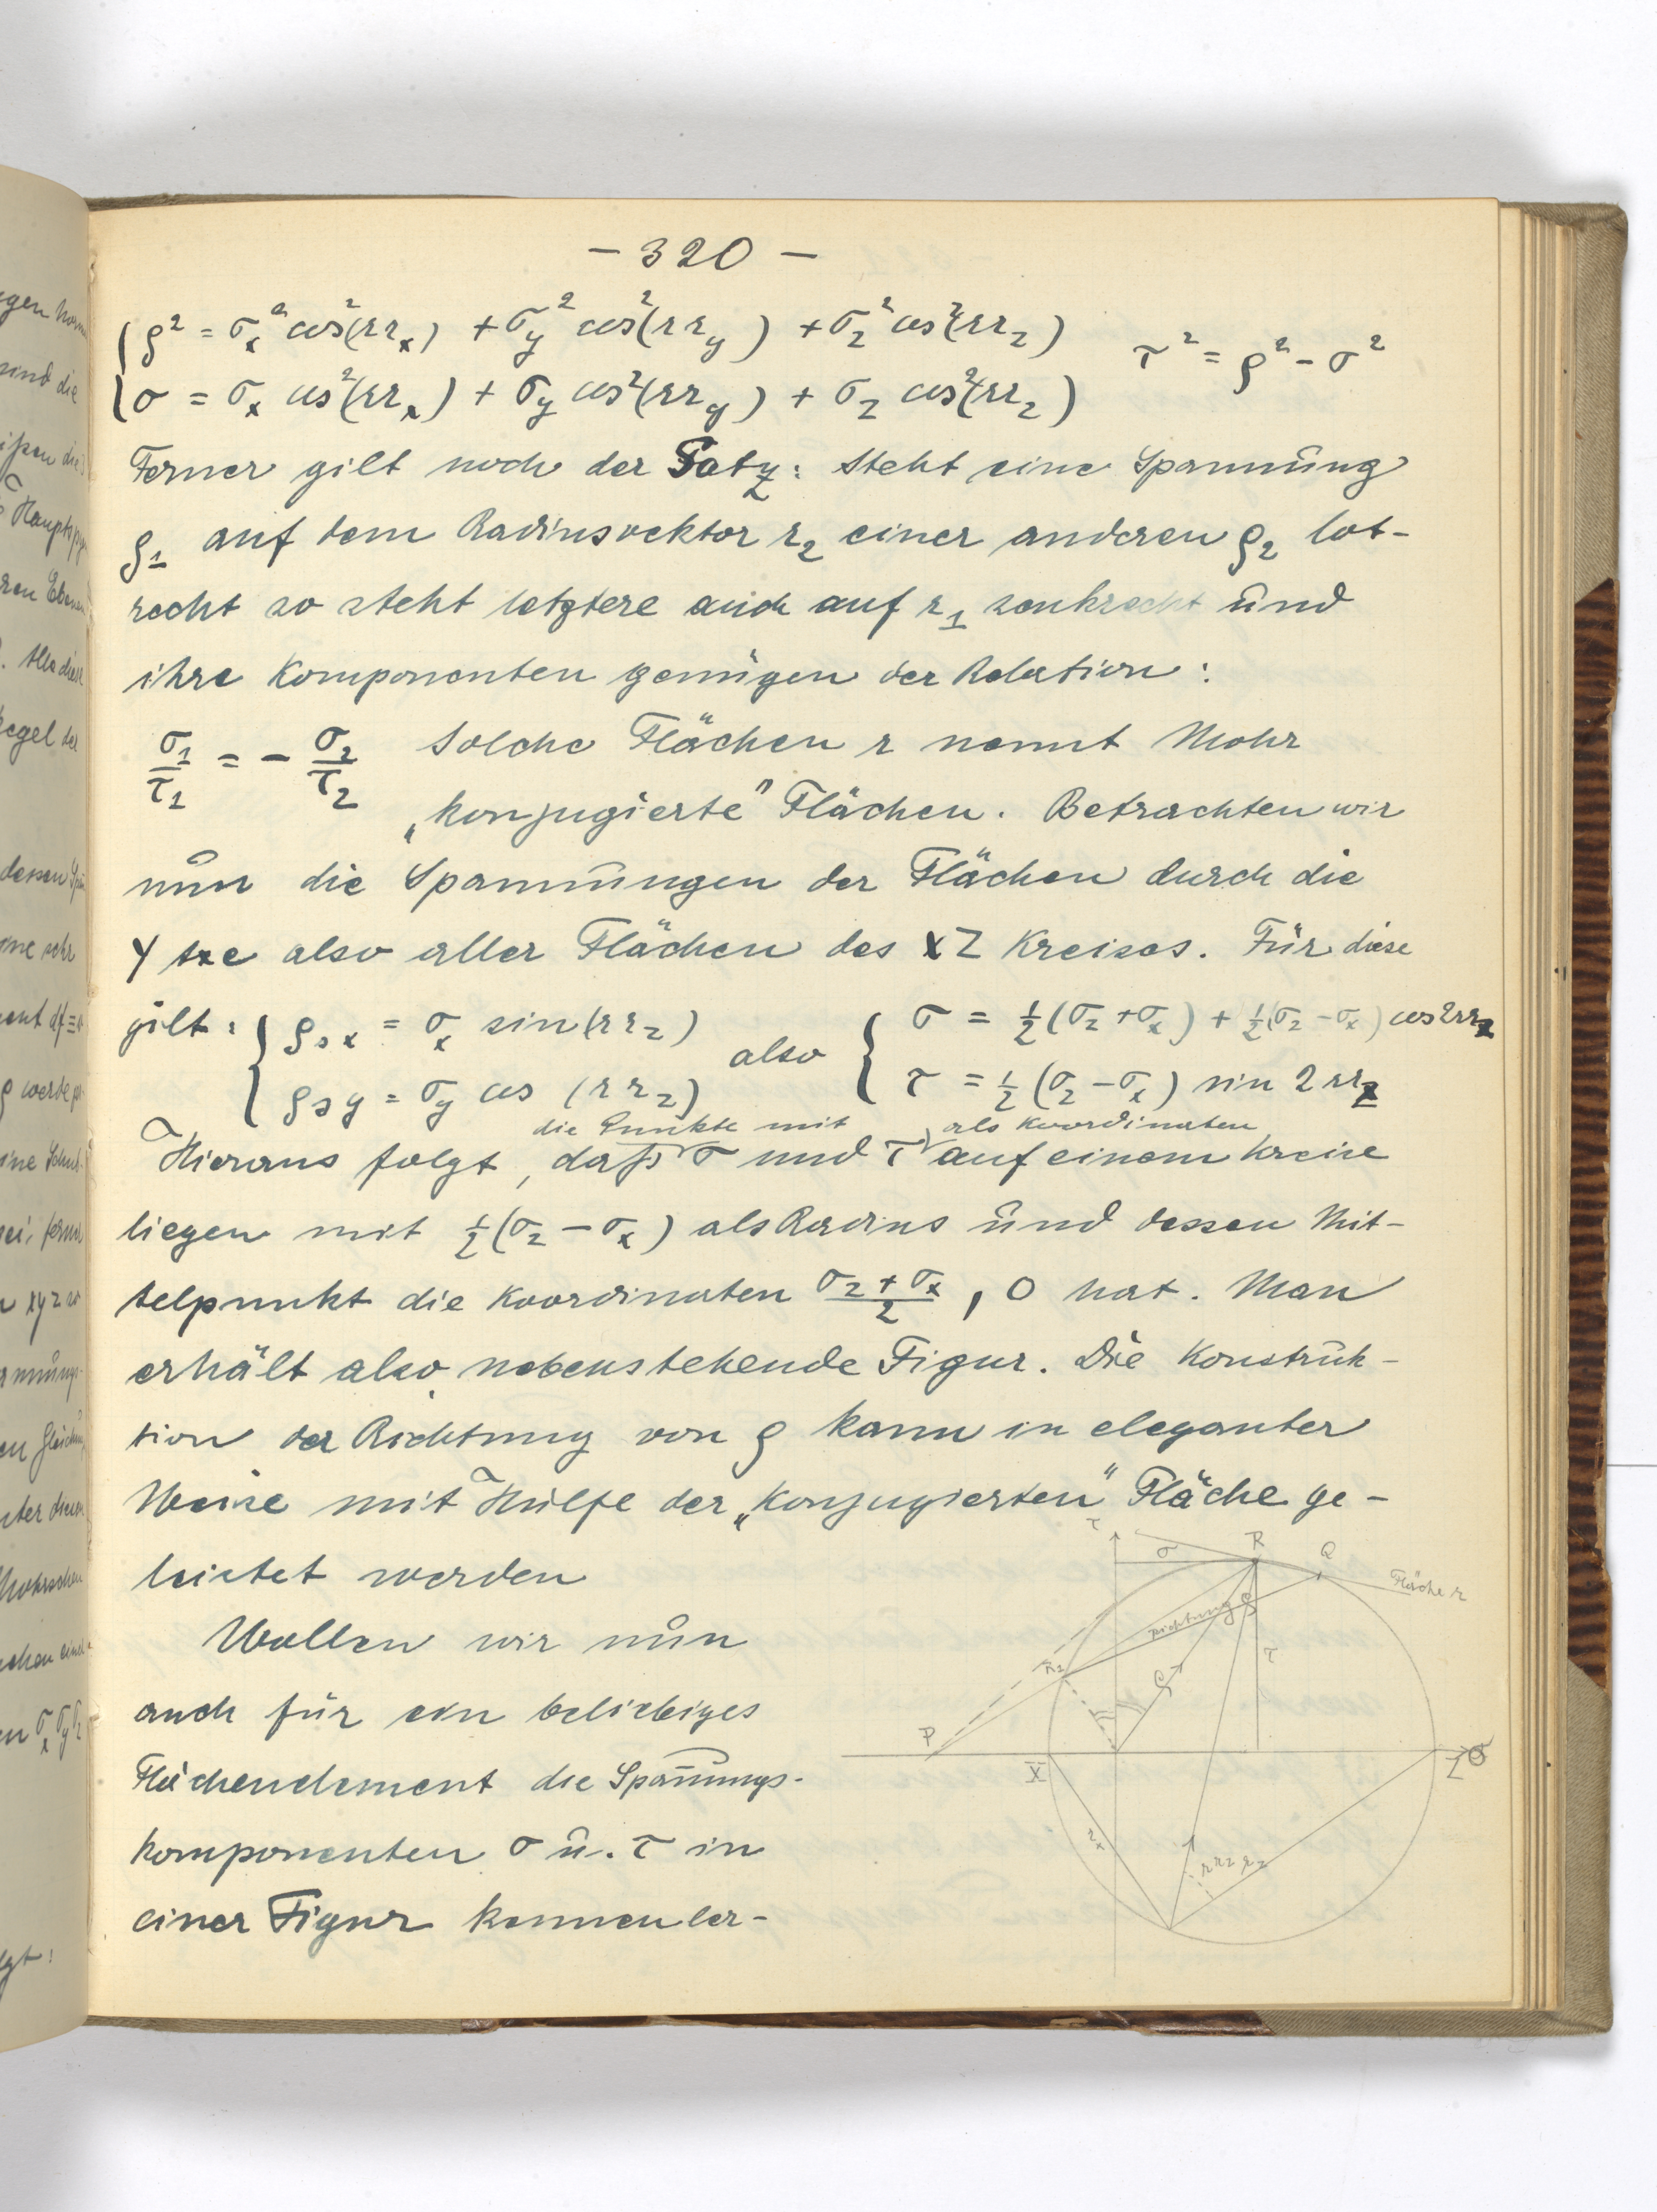 - 320 -
ρ² = σx² cos²(rrx) + σy² cos²(rry) + σz² cos²(rrz)
τ² = ρ² - σ²
σ = σx cos²(rrx) + σy cos²(rry) + σz cos²(rrz)
Ferner gilt noch der Satz: Steht eine Spannung
ρ1 auf dem Radiusvektor r2 einer anderen ρ2 lot-
recht so steht letztere auch auf r1 senkrecht und
ihre Komponenten genügen der Relation:
σ1/τ1 = - σ2/τ2 Solche Flächen r nennt Mohr
„konjugierte" Flächen. Betrachten wir
nun die Spannungen der Flächen durch die
Y axe also aller Flächen des XZ Kreises. Für diese
gilt: { ρsx = σx sin(rrz) also { σ = ½(σz + σx) + ½(σz - σx) cos2rrz
ρsy = σy cos (rrz) τ = ½(σz - σx) sin 2rrz
die Punkte mit als Koordinaten
Hieraus folgt, daß σ und τ auf einem Kreise
liegen mit ½(σz - σx) als Radius und dessen Mit-
telpunkt die Koordinaten (σz + σx)/2 , 0 hat. Man
erhält also nebenstehende Figur. Die Konstruk-
tion der Richtung von ρ kann in eleganter
Weise mit Hülfe der „Konjugierten" Fläche ge-
leistet werden
Wollen wir nun
auch für ein beliebiges
Flächenelement die Spannungs-
komponenten σ u. τ in
einer Figur kennen ler-
τ
σ
R
Q
Fläche r
Richtung ρ
R2
ρ
τ
P
X
Z
σ
rx
rrz
rz